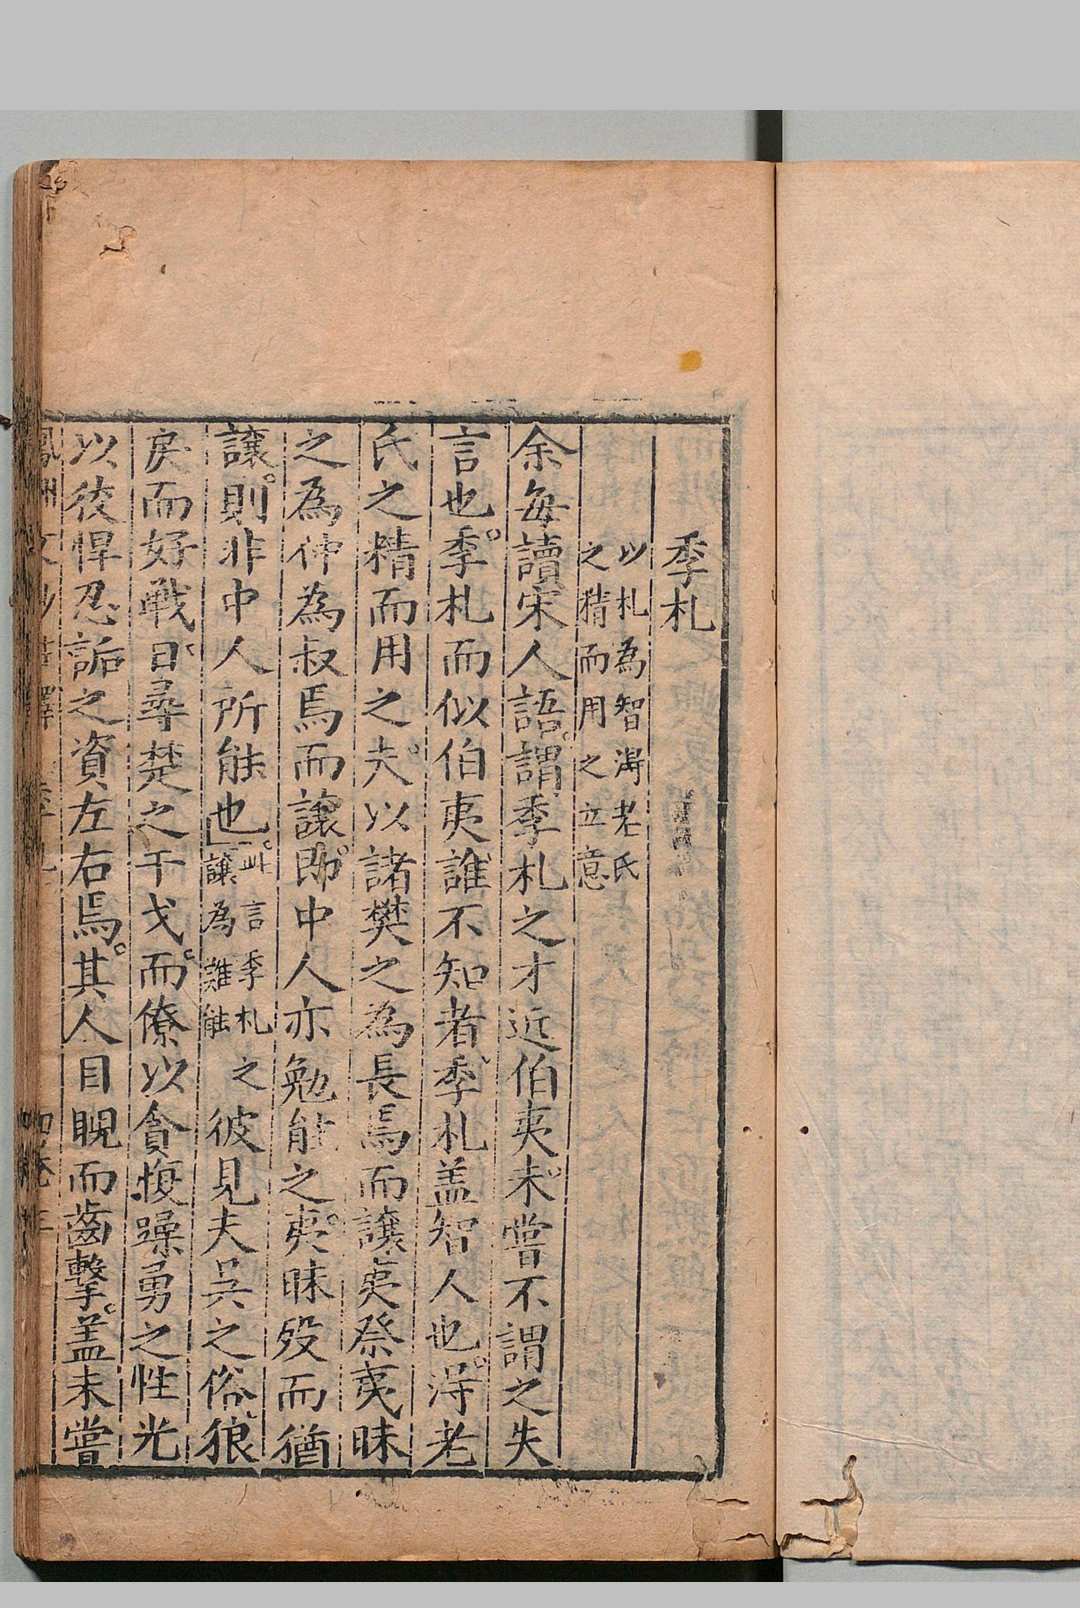 季札
以札為智淂老氏
之精而用之立意
余每讀宋人語謂季札之才近伯夷未嘗不謂之失
言也季札而似伯夷誰不知者季札盖智人也淂老
氏之精而用之夫以諸樊之為長焉而讓夷祭夷昧
之為仲為叔焉而讓即中人亦勉能之夷昧歿而猶
讓則非中人所能也此言季札之讓為難能彼見夫吳之俗狼
戾而好戰日尋楚之干戈而僚以貪愎躁勇之性光
以狡悍忍詬之資左右焉其人目睨而齒擊盖未嘗